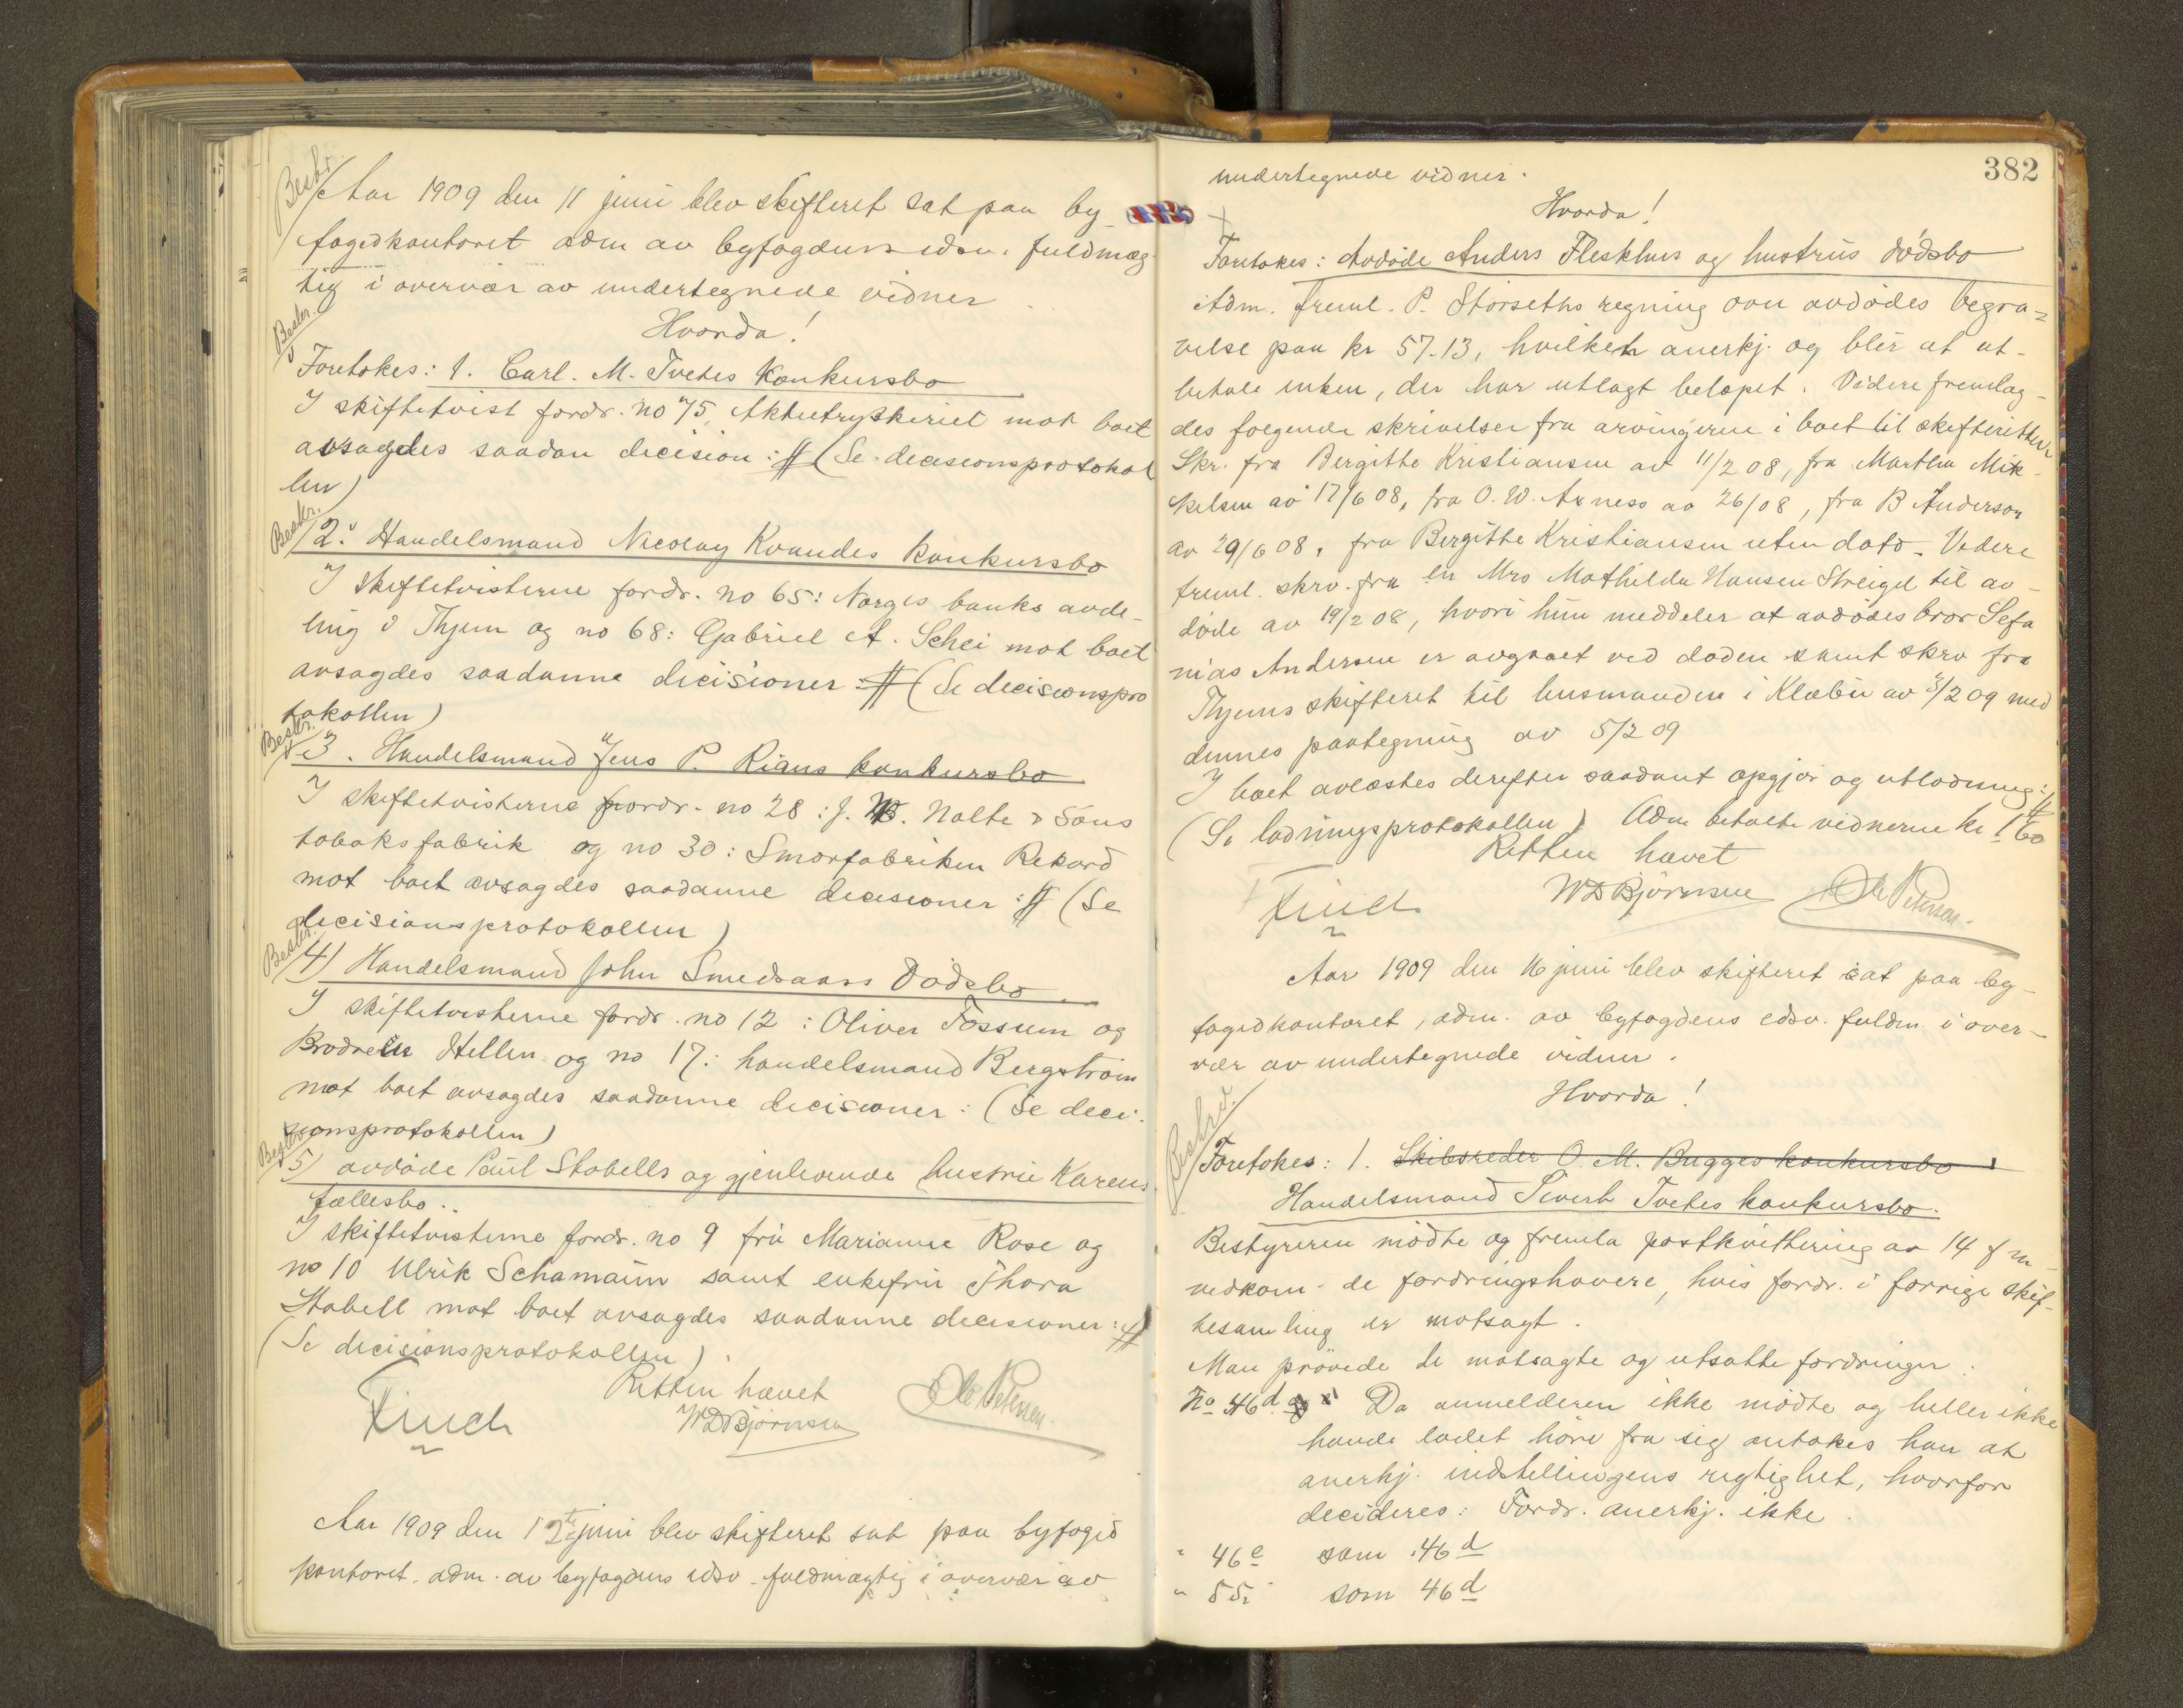 Beskr.
Aar 1909 den 11 juni blev skifteret sat paa by-
fogedkontoret adm av byfogdens edsv. fuldmæg-
tig i overvær av undertegnede vidner
Hvorda!
Beskr.
Foretokes: 1. Carl. M. Tvetes Konkursbo
I skiftetvist fordr. no 75, Aktietrykkeriet mot boet
avsagdes saadan decision: # (Se decisionsprotokol
len)
Beskr.
2. Handelsmand Nicolay Kvandes konkursbo
I skiftetvisterne fordr. no 65: Norges banks avde-
ling i Thjem og no 68: Gabriel A. Schei mot boet
avsagdes saadanne decisioner: # (Se decisionspro
tokollen)
Beskr.
3. Handelsmand Jens P. Rians konkursbo
I skiftetvisterne fordr. no 28: J. W. Nolte & Søns
tobaksfabrik og no 30: Smørfabriken Rekord
mot boet avsagdes saadanne decisioner: # (Se
decisionsprotokollen)
Beskr.
4) Handelsmand John Smedsaass Dødsbo
I skiftetvisterne fordr. no 12: Oliver Fossum og
Brødrene Hellen og no 17: handelsmand Bergstrøm
mot boet avsagdes saadanne decisioner: (Se deci-
sionsprotokollen)
Beskr.
5) avdøde Paul Stabells og gjenlevende hustru Karens
fællesbo..
I skiftetvisterne fordr. no 9 fru Marianne Rose og
no 10 Ulrik Schamaun samt enkefru Thora
Stabell mot boet avsagdes saadanne decisioner: #
(Se decisionsprotokollen).
Retten hævet
Finch WDBjørnsen Ole Petersen.
Aar 1909 den 12te juni blev skifteret sat paa byfoged
kontoret adm. av byfogdens edsv. fuldmægtig i overvær av
382
undertegnede vidner.
Hvorda!
Foretokes: Avdøde Anders Fleskhus og hustrus dødsbo
Adm. freml. P. Størseths regning ovn avdødes begra=
velse paa kr 57.13, hvilken anerkj. og blir at ut-
betale enken, der har utlagt beløpet. Videre fremlag-
des følgende skrivelser fra arvingerne i boet til skifteretten
Skr. fra Bergitte Kristiansen av 11/2 08, fra Martha Mik-
kelsen av 17/6 08, fra O. W. Axness av 26/08, fra B Anderson
av 29/6 08, fra Bergitte Kristiansen uten dato. Videre
freml. skrv. fra en Mrs Mathilda Hansen Streigel til av-
døde av 19/2 08, hvori hun meddeler at avdødes bror Sefa
nias Andersen er avgaaet ved døden samt skrv fra
Thjems skifteret til lensmanden i Klæbu av 3/2 09 med
dennes paategning av 5/2 09
I boet avlæstes derefter saadant opgjør og utlodning: #
(Se lodningsprotokollen) Adm betalte vidnerne kr 1.60
Retten hævet
Finch WDBjørnsen Ole Petersen.
Aar 1909 den 16 juni blev skifteret sat paa by-
fogedkontoret, adm. av byfogdens edsv. fuldm. i over-
vær av undertegnede vidner.
Hvorda!
Beskr.
Foretokes: 1. Skibsreder O. M. Bugges konkursbo
Handelsmand Sivert Tvetes konkursbo.
Bestyreren mødte og fremla postkvittering av 14 f m
vedkom. de fordringshavere, hvis fordr. i forrige skif-
tesamling er motsagt.
Man prøvede de motsagte og utsatte fordringer.
No 46d Da anmelderen ikke mødte og heller ikke
havde ladet høre fra sig antokes han at
anerkj. indstillingens rigtighet, hvorfor
decideres: Fordr. anerkj. ikke.
" 46e som 46d
" 55 som 46d